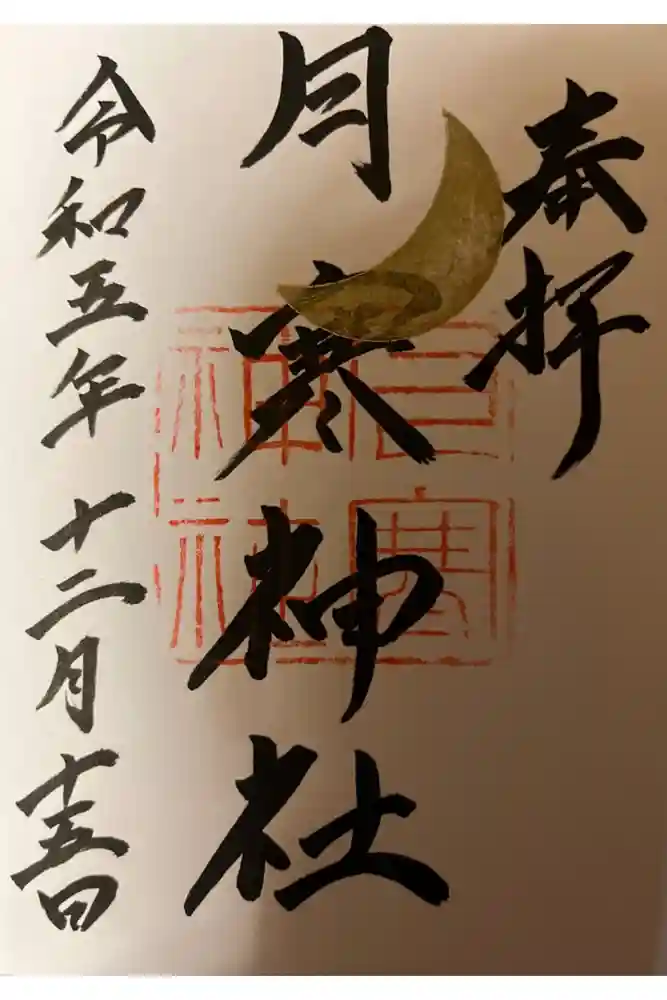 奉拝
月寒神社
令和五年十二月十五日
月寒神社